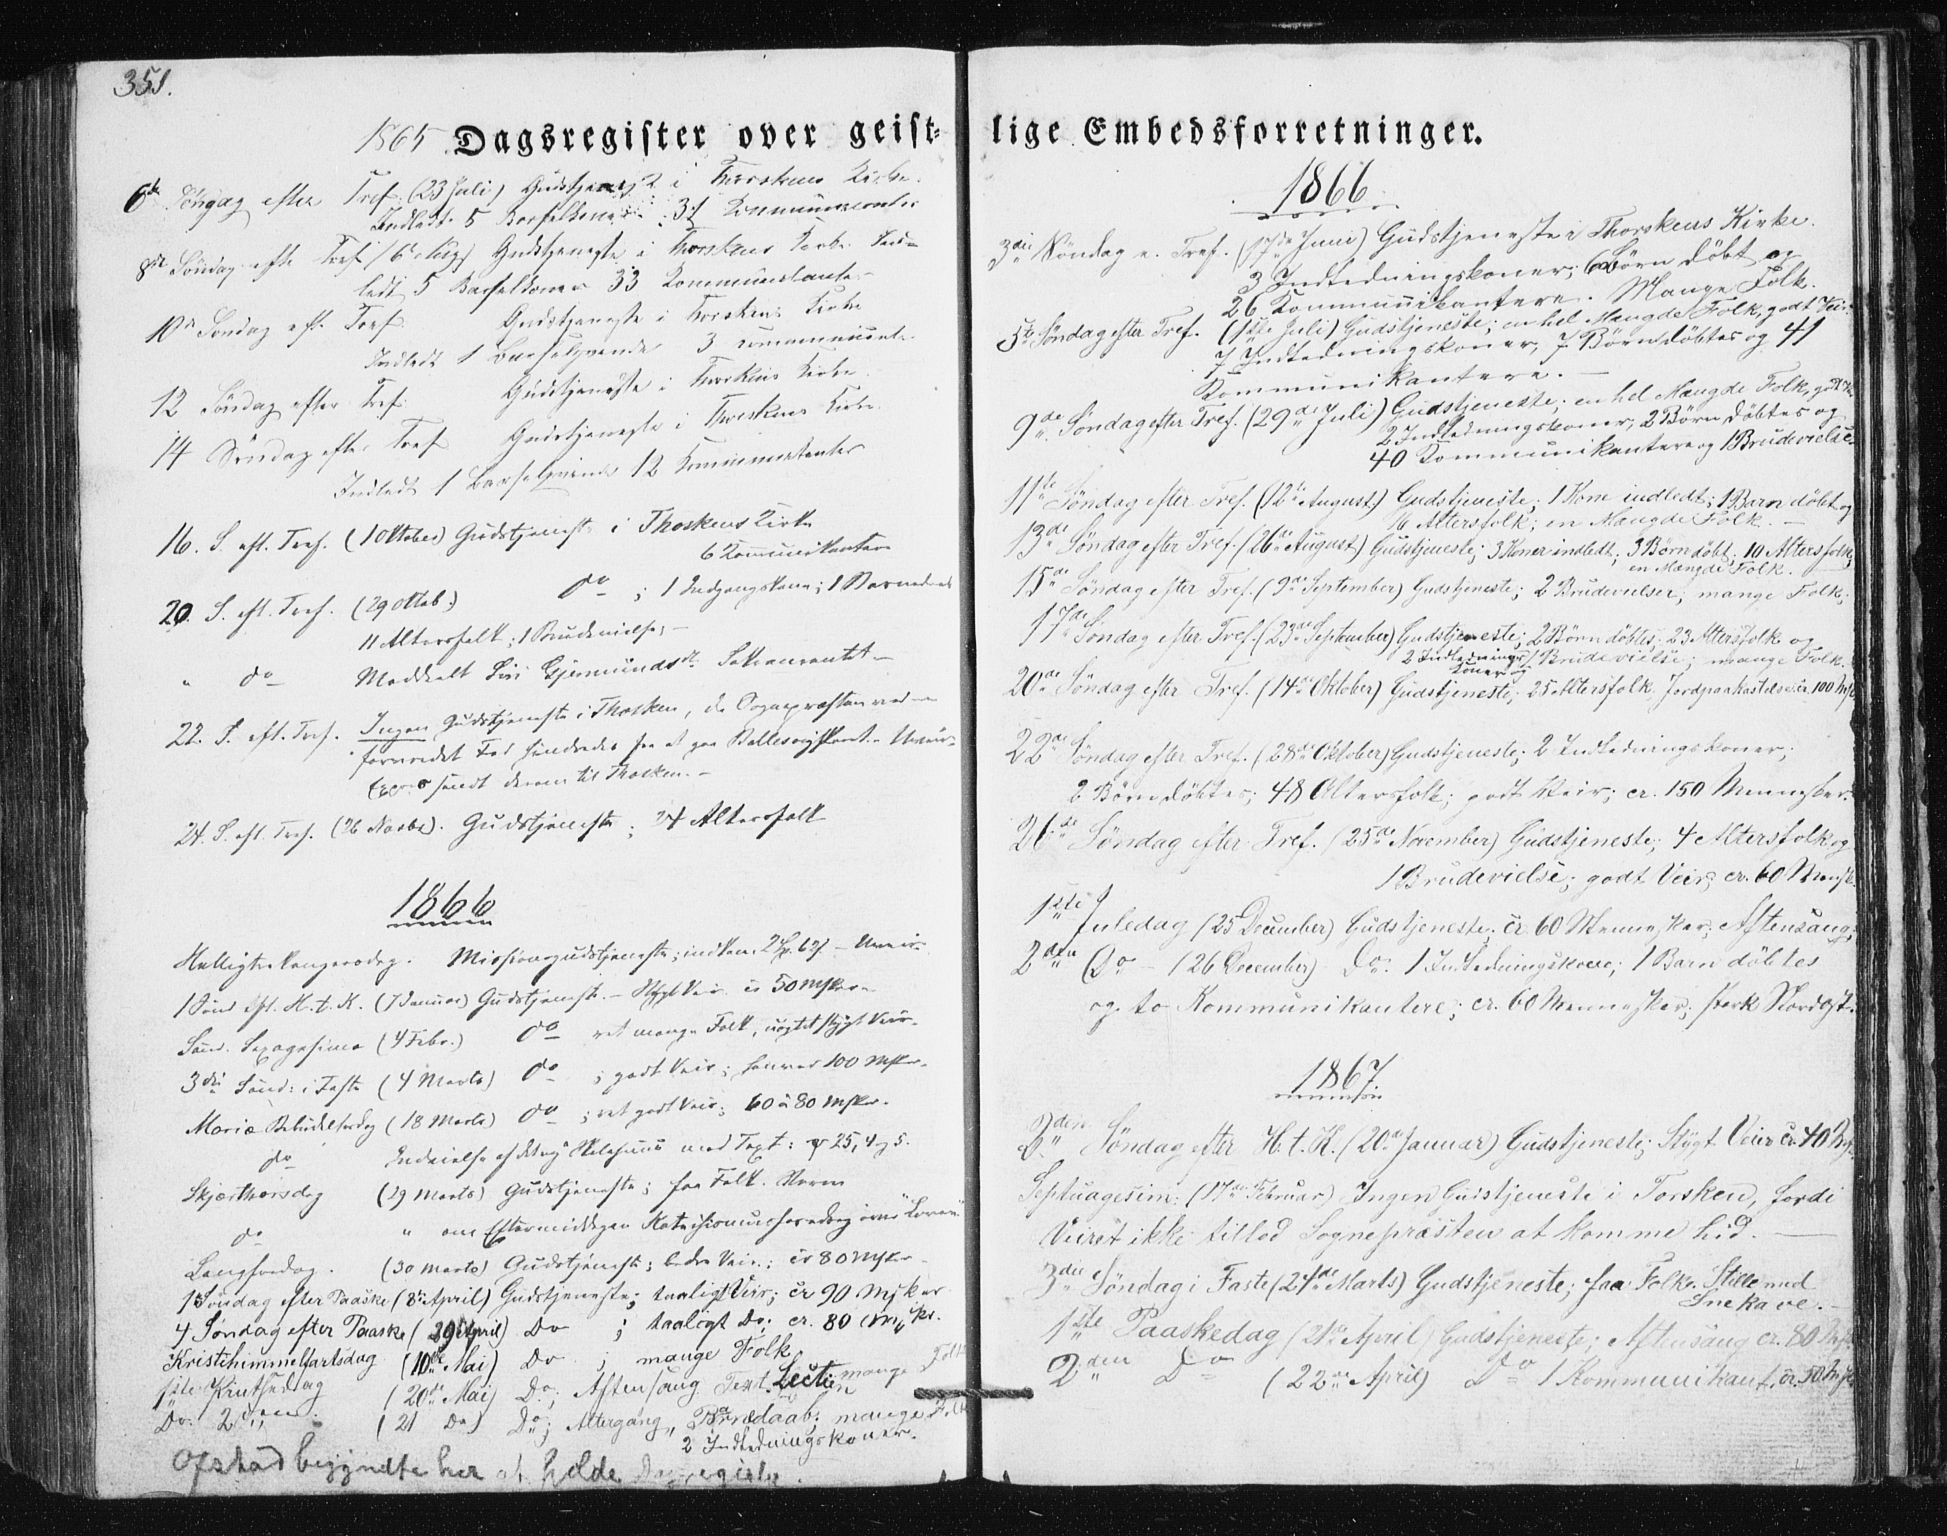 351.
1865 Dagsregister over geist-
6te Søngag efter Tref. (23 Juli) Gudstjeneste i Thorskens Kirke.
Indledt 5 Barselkoner 31 Kommunicanter
8de Søndag efter Tref (6 Aug) Gudstjeneste i Thorskens Kirke Ind-
ledt 5 Barselkoner 33 Kommunikanter
10de Søndag eft. Tref. Gudstjeneste i Torskens Kirke
Indledt 1 Barselqvinde 3 communicanter
12 Søndag efter Tref. Gudstjeneste i Thorskens Kirke
14 Søndag efter Tref Gudstjeneste i Thorskens Kirke.
Indledt 1 Barselqvinde 12 Kommunikanter
16. S. eft. Tref. (1 Oktober) Gudstjeneste i Thoskens Kirke
6 Kommunikanter
20. S. eft. Tref. (29 Oktob.) do ; 1 Indgangskone; 1 Barnedaab
11 Altersfolk; 1 Brudevielse;
" do Meddeelt Siri Gjermundsdr. Sakramentet
22. S. eft. Tref. Ingen Gudstjeneste i Thosken, da Sognepræsten ved en
forvredet Fod hindredes fra at gaa Ballesvigskaret.
Expres sendt derom til Thosken. -
24. S. eft. Tref. (26 Novbr). Gudstjeneste; 24 Altersfolk
1866
Helligtrekongersdag. Missionsgudstjeneste; indkom 2 Sp. 62 s. - Uveir
1 Sønd eft. H. t. K. (7 Januar) Gudstjeneste - Stygt Veir cr 50 Msker
Sønd. Sexagesima (4 Febr.) do ret mange Folk, uagtet stygt Veir.
3die Sønd: i Faste (4 Marts) do ; godt Veir; henved 100 Msker.
Mariæ Bebudelsesdag (18 Marts) do ; ret godt Veir; 60 à 80 Msker.
do Indvielse af det ny Skolehuus med Text: ψ 25, 4 og 5.
Skjærthorsdag (29 Marts) Gudstjeneste; faa Folk. Storm
do " om Eftermiddagen Katechismusforedrag over
Langfredag. (30 Marts) Gudstjeneste; bedre Veir; cr 80 Msker
1 Søndag efter Paaske (8de April) Gudstjeneste; taaligt Veir; cr 90 Msker
4 Søndag efter Paaske (29 April) Do ; taaligt Do; cr. 80 Mskr.
Kristihimmelfartsdag (10de Mai) Do ; mange Folk
1ste Pintsedag (20de Mai) Do; Aftensang Text Lectien mange Folk
Do. 2den. (21 Do) Do; Altergang, Barnedaab; mange Folk
2 Indledningskoner.
Ofstad begyndte her at holde Dagregister.
lige Embedsforretninger.
1866
3die Søndag e. Tref. (17de Juni) Gudstjeneste i Thorskens Kirke.
3 Indledningskoner; 6 Børn døbt og
26 Kommunikantere. Mange Folk.
5te Søndag efter Tref. (1ste Juli) Gudstjeneste; en hel Mængde Folk, godt Veir.
7 Indledningskoner, 7 Børn døbtes og 41
Kommunikantere. -
9de Søndag efter Tref. (29de Juli) Gudstjeneste; en hel Mængde Folk, godt Veir
2 Indledningskoner, 2 Børn døbtes og
40 Kommunikantere og 1 Brudevielse.
11te Søndag efter Tref. (12te August) Gudstjeneste; 1 Kone indledt; 1 Barn døbt og
16 Altersfolk; en Mængde Folk. -
13de Søndag efter Tref. (26de August) Gudstjeneste; 3 Koner indledt; 3 Børn døbt; 10 Altersfolk;
en Mængde Folk. -
15de Søndag efter Tref. (9de September) Gudstjeneste; 2 Brudevielser; mange Folk;
17de Søndag efter Tref. (23de September) Gudstjeneste; 2 Børn døbtes; 23 Altersfolk og
2 Indlednings Koner og 1 Brudevielse; mange Folk.
20de Søndag efter Tref. (14de Oktober) Gudstjeneste; 25 Altersfolk. Jordpaakastelse cr. 100 Msk
22de Søndag efter Tref. (28de Oktober) Gudstjeneste; 2 Indledningskoner;
2 Børn døbtes; 48 Altersfolk; godt Veir; cr. 150 Mennesker.
26de Søndag efter Tref. (25de November) Gudstjeneste; 4 Altersfolk og
1 Brudevielse; godt Veir; cr. 60 Mensk.
1ste Juledag (25 December) Gudstjeneste; cr. 60 Mennesker; Aftensang;
2den Do - (26 December) Do. 1 Indledningskone; 1 Barn døbtes
og to Kommunikantere; cr. 60 Mennesker; sterk Nordost.
1867.
2den Søndag efter H. t. K. (20de Januar) Gudstjeneste; Stygt Veir cr. 40 Msk.
Septuagesim: (17de Februar) Ingen Gudstjeneste i Torsken, fordi
Veiret ikke tillod Sognepræsten at komme hid. -
3die Søndag i Faste (24de Marts) Gudstjeneste; faa Folk. Stille med
Snekave. -
1ste Paaskedag (21de April) Gudstjeneste; Aftensang cr. 80 Msk.
2den Do (22de April) Do 1 Kommunikant, cr. 50 Msk